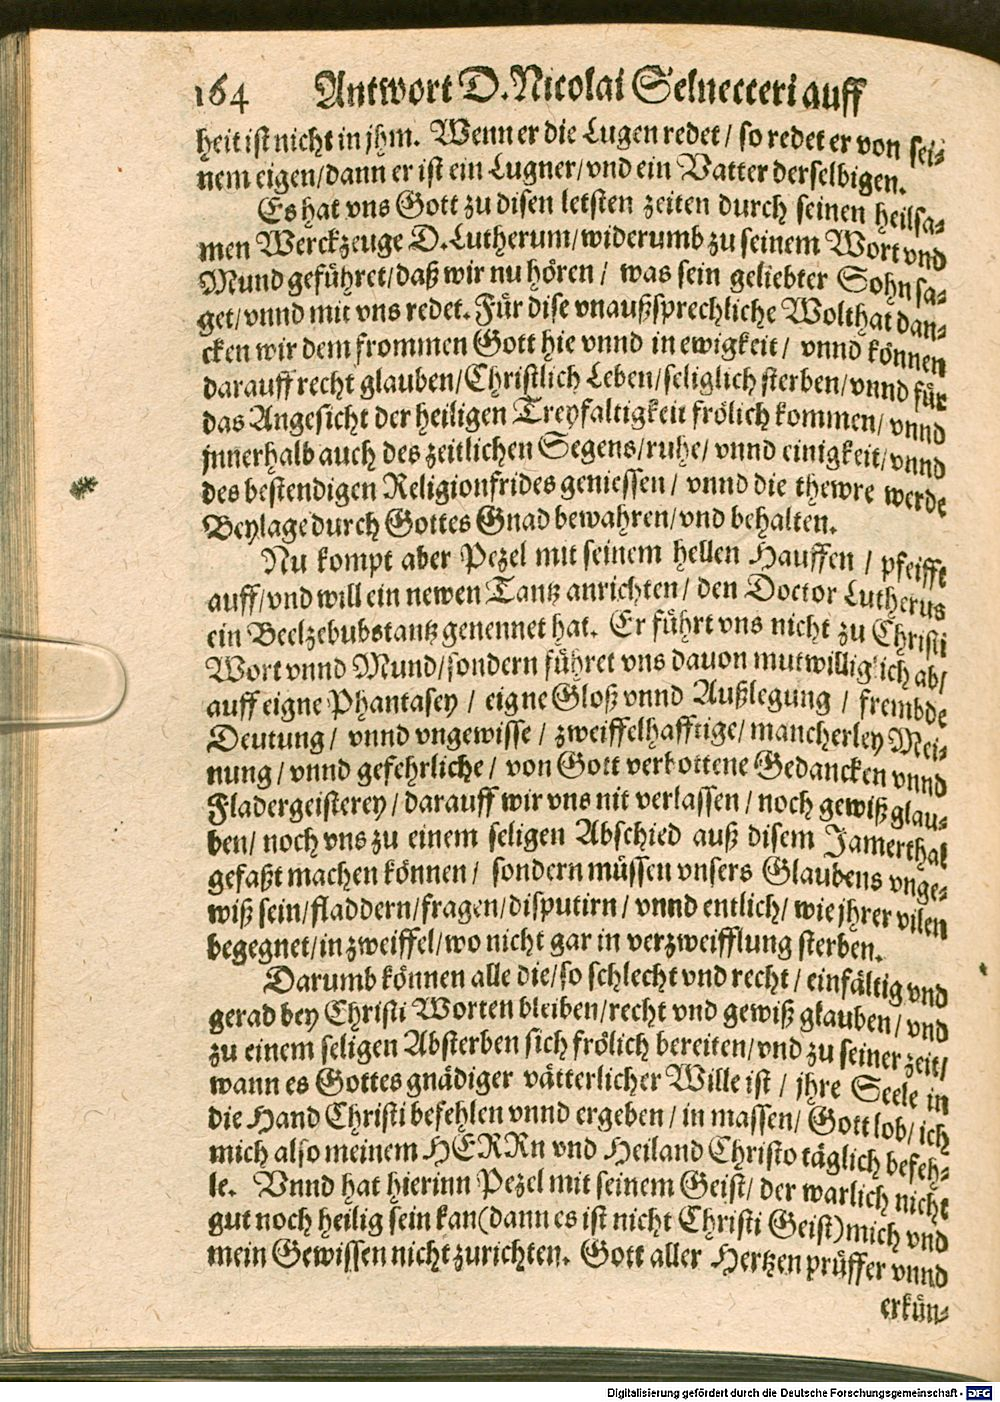 164 Antwort D. Nicolai Selnecceri auff
heit ist nicht in jhm. Wenn er die Lugen redet / so redet er von sei-
nem eigen / dann er ist ein Lugner / vnd ein Vatter derselbigen.
Es hat vns Gott zu disen letsten zeiten durch seinen heilsa-
men Werckzeuge D. Lutherum / widerumb zu seinem Wort vnd
Mund geführet / daß wir nu hören / was sein geliebter Sohn sa-
get / vnnd mit vns redet. Für dise vnaußsprechliche Wolthat dan-
cken wir dem frommen Gott hie vnnd in ewigkeit / vnnd können
darauff recht glauben / Christlich Leben / seliglich sterben / vnnd für
das Angesicht der heiligen Treyfaltigkeit frölich kommen / vnnd
jnnerhalb auch des zeitlichen Segens / ruhe / vnnd einigkeit / vnnd
des bestendigen Religionfrides geniessen / vnnd die thewre werde
Beylage durch Gottes Gnad bewahren / vnd behalten.
Nu kompt aber Pezel mit seinem hellen Hauffen / pfeifft
auff / vnd will ein newen Tantz anrichten / den Doctor Lutherus
ein Beelzebubstantz genennet hat. Er führt vns nicht zu Christi
Wort vnnd Mund / sondern führet vns dauon mutwilliglich ab /
auff eigne Phantasey / eigne Gloß vnnd Außlegung / frembde
Deutung / vnnd vngewisse / zweiffelhafftige / mancherley Mei-
nung / vnnd gefehrliche / von Gott verbottene Gedancken vnnd
Fladergeisterey / darauff wir vns nit verlassen / noch gewiß glau-
ben / noch vns zu einem seligen Abschied auß disem Jamerthal
gefaßt machen können / sondern müssen vnsers Glaubens vnge-
wiß sein / fladdern / fragen / disputirn / vnnd entlich / wie jhrer vilen
begegnet / in zweiffel / wo nicht gar in verzweifflung sterben.
Darumb können alle die / so schlecht vnd recht / einfältig vnd
gerad bey Christi Worten bleiben / recht vnd gewiß glauben / vnd
zu einem seligen Absterben sich frölich bereiten / vnd zu seiner zeit /
wann es Gottes gnädiger vätterlicher Wille ist / jhre Seele in
die Hand Christi befehlen vnnd ergeben / in massen / Gott lob / ich
mich also meinem HERRn vnd Heiland Christo täglich befeh-
le. Vnnd hat hierinn Pezel mit seinem Geist / der warlich nicht
gut noch heilig sein kan (dann es ist nicht Christi Geist) mich vnd
mein Gewissen nicht zurichten. Gott aller Hertzen prüffer vnnd
erkün-
Digitalisierung gefördert durch die Deutsche Forschungsgemeinschaft - DFG